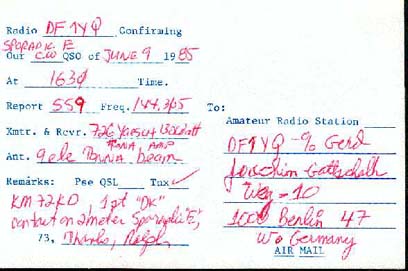 Radio DF1YQ Confirming
SPORADIC E
Our CW QSO of JUNE 9 1985
At 1630 Time.
Report 559 Freq. 144,305 To:
Amateur Radio Station
Xmtr. & Rcvr. 726 Yaesu
Ant. 9 ele TONNA beam
DF1YQ - % Gerd
Joachim Gottschalk
Remarks: Pse QSL Tnx ✓
Weg - 10
KM72KD, 1st "DK"
1000 Berlin 47
contact on 2 meter Sporadic "E",
73, Thanks, Ralph
W. Germany
AIR MAIL